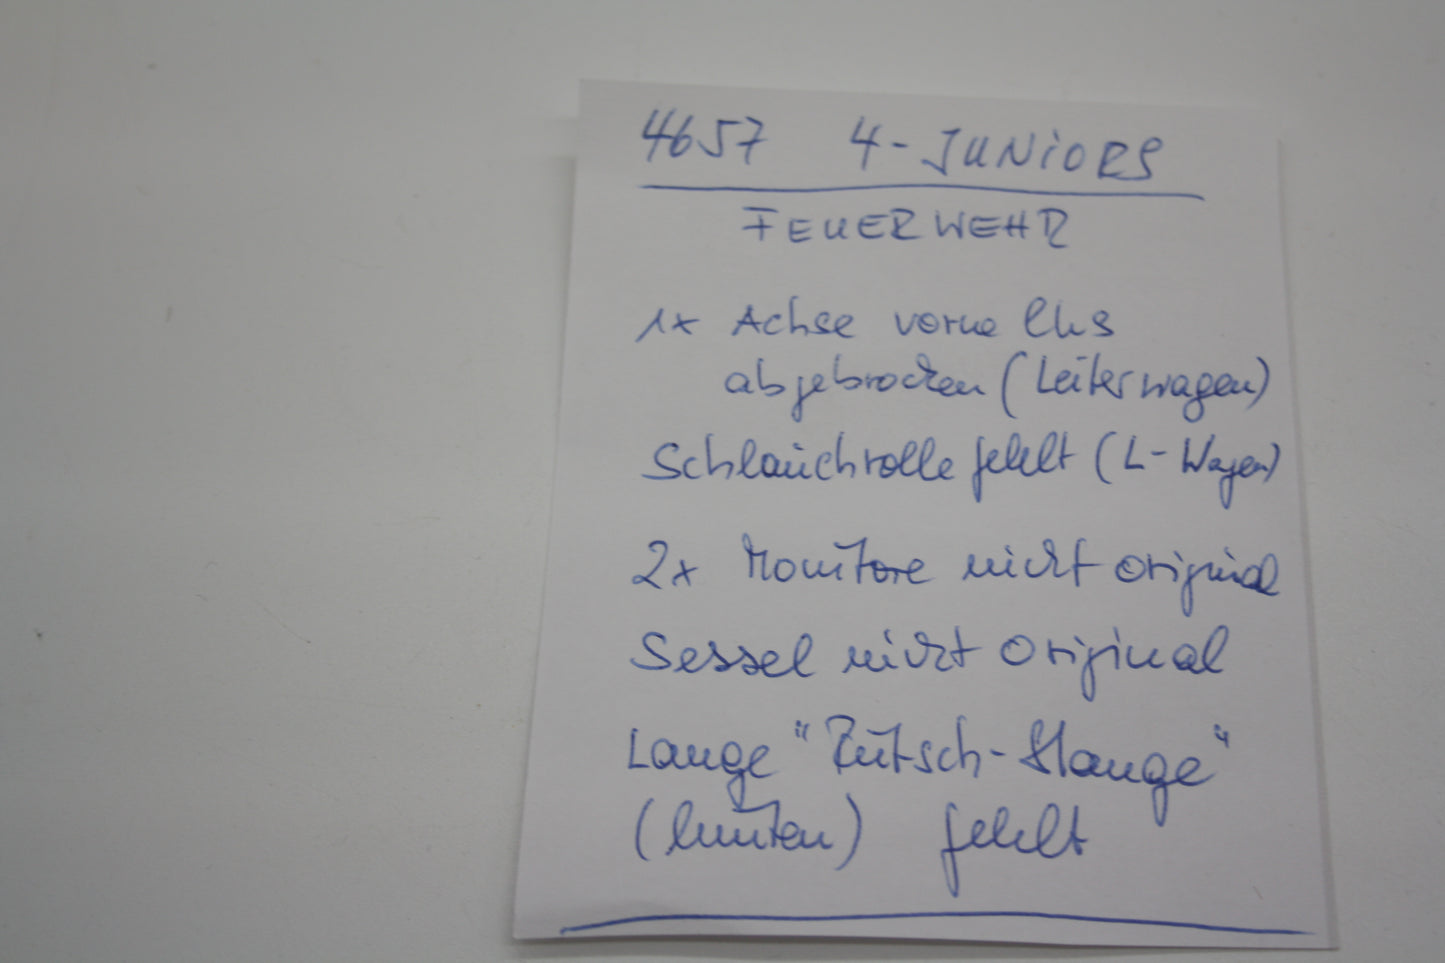 4657 4-JUNiORS
FEUERWEHR
1x Achse vorne lks
abgebrochen (Leiterwagen)
Schlauchrolle fehlt (L-Wagen)
2x Monitore nicht original
Sessel nicht Original
Lange "Rutsch-Stange"
(hinten) fehlt